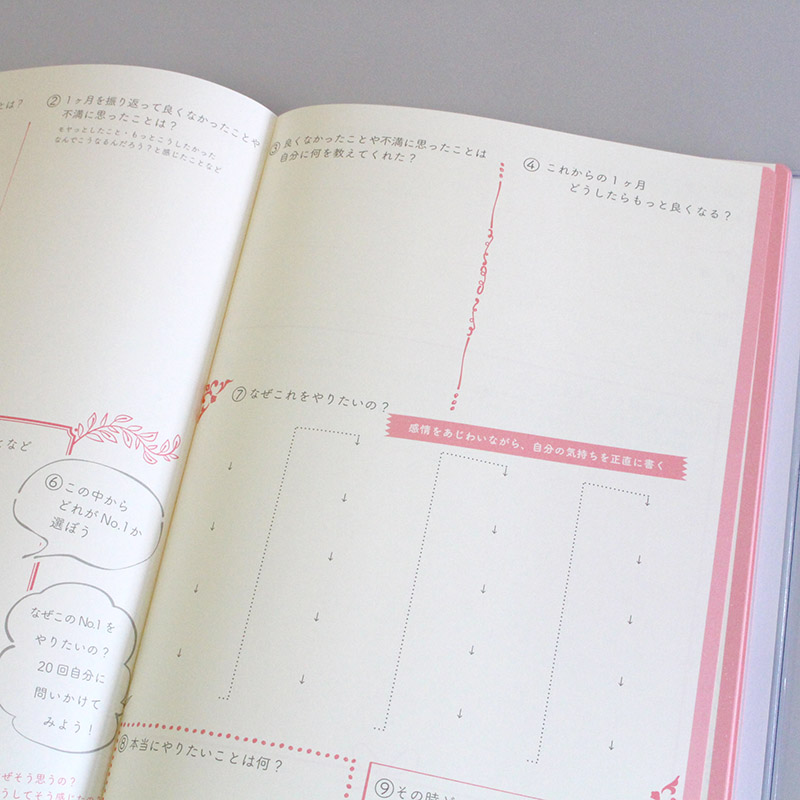 とは？
②1ヶ月を振り返って良くなかったことや
不満に思ったことは？
モヤッとしたこと・もっとこうしたかった
なんでこうなるんだろう？と感じたことなど
③良くなかったことや不満に思ったことは
自分に何を教えてくれた？
④これからの1ヶ月
どうしたらもっと良くなる？
となど
⑥この中から
どれがNo.1か
選ぼう
なぜこのNo.1を
やりたいの？
20回自分に
問いかけて
みよう！
ぜそう思うの？
うしてそう感じたの
⑦なぜこれをやりたいの？
感情をあじわいながら、自分の気持ちを正直に書く
⑧本当にやりたいことは何？
⑨その時